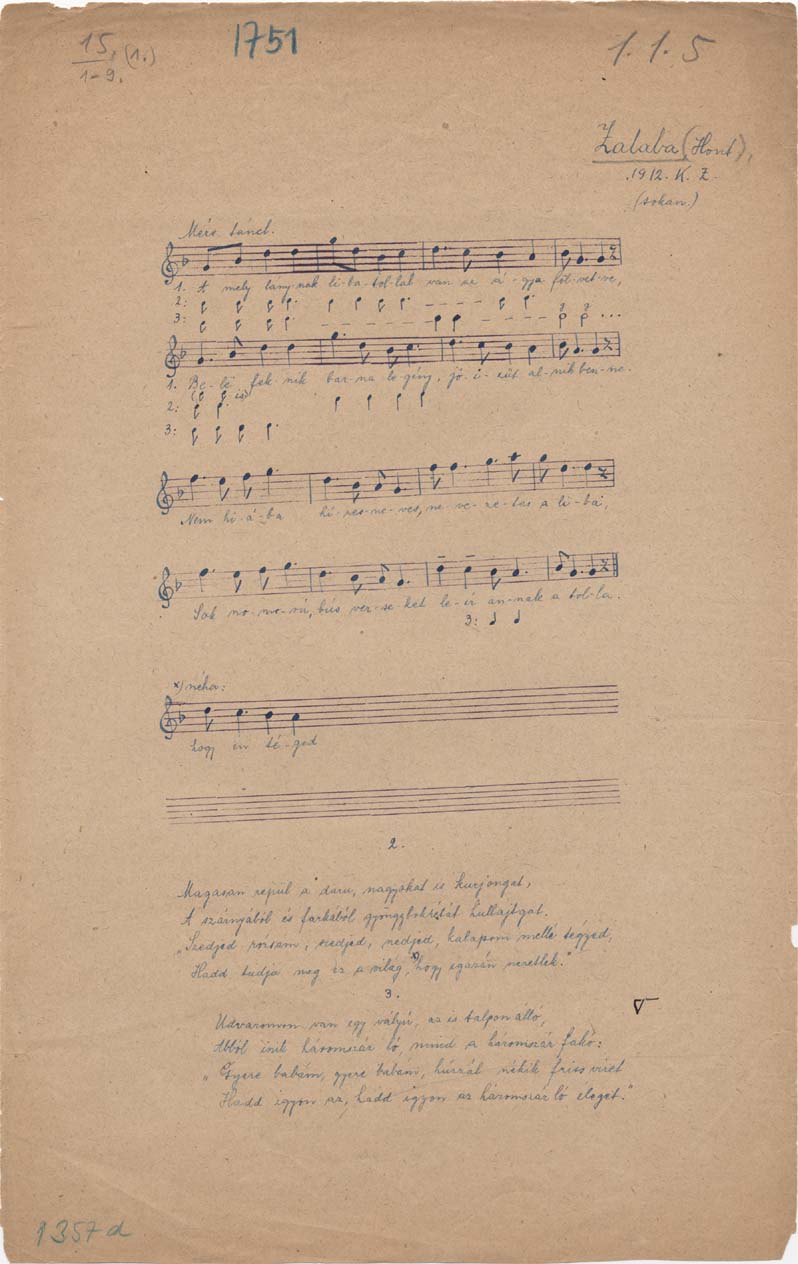 15. (1.)
1-9.
1751
1.1.5
Zalaba (Hont),
1912. K. Z.
(sokan.)
Mérs. táncl.
1. A mely lány-nak li-ba-tol-lal van ze á-gya föl-vet-ve,
2:
3:
1. Be-lé fek-nik bar-na le-gény, jó-i-zűt al-nik ben-ne.
2:
3:
Nem hi-á-ba hí-res-ne-ves, ne-ve-ze-tes a li-ba,
Sok szo-mo-rú, bús ver-se-ket le-ír an-nak a tol-la.
3:
x) néha:
hogy én té-ged
2.
Magasan repül a daru, nagyokat is kurjongat,
A szárnyából és farkából gyöngybokrétát hullajtgat.
"Szedjed rózsám, szedjed, szedjed, kalapom mellé tégyed,
Hadd tudja meg ez a világ, x) hogy igazán szeretlek."
3.
Udvaromon van egy vályú, az is talpon álló,
Abból iszik háromszáz ló, mind a háromszáz fakó:
"Gyere babám, gyere babám, húzzál nékik friss vizet
Hadd igyon az, hadd igyon az háromszáz ló eleget."
1357d